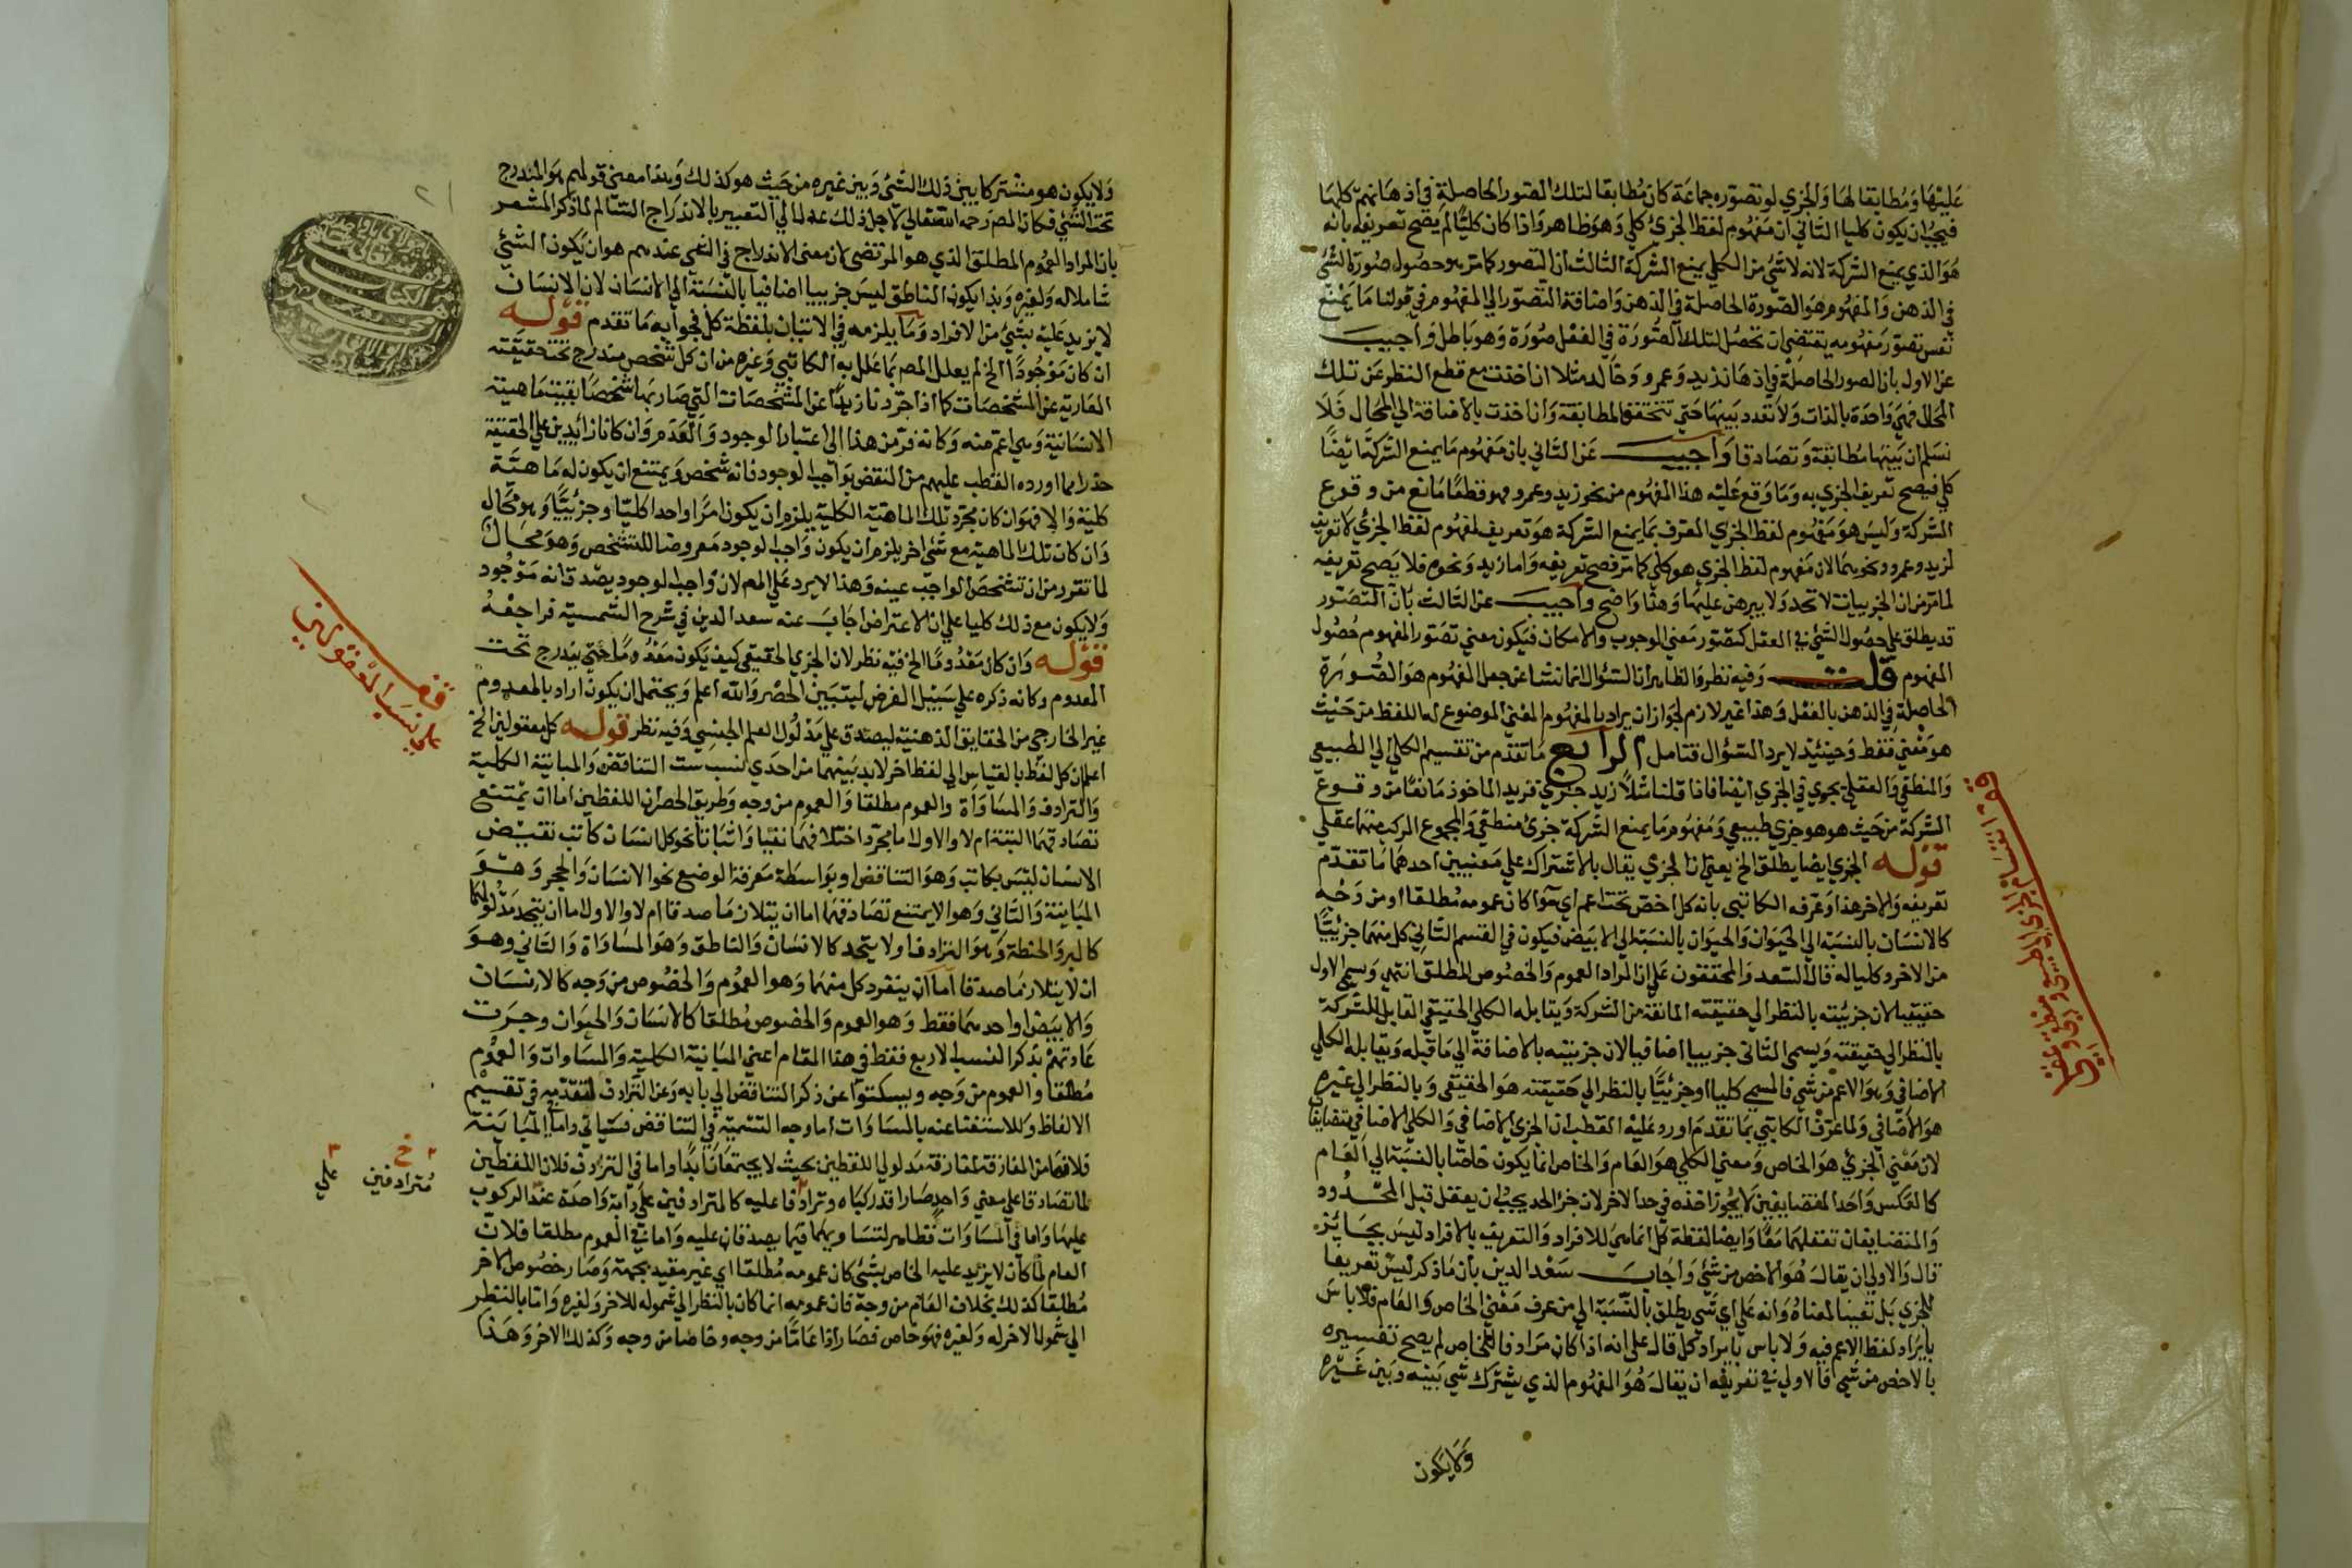 عليها ومطابقا لها والجزي لو تصوره جماعة كان مطابقا لتلك الصور الحاصلة في اذهانهم كلها
فيجب ان يكون كليا الثاني ان مفهوم لفظ الجزئ كلي وهو ظاهر واذا كان كليا لم يصح تعريفه بانه
هو الذي يمنع الشركة لانه لا شئ من الكلي يمنع الشركة الثالث ان التصور كما مر هو حصول صورة الشئ
في الذهن والمفهوم هو الصورة الحاصلة في الذهن واضافة التصور الي المفهوم في قولنا ما يمنع
نفس تصور مفهومه يقتضي ان تحصل لتلك الصورة في العقل صورة وهو باطل واجيب
عن الاول بان الصور الحاصلة في اذهان زيد وعمرو وخالد مثلا ان اخذت مع قطع النظر عن تلك
المحال فهي واحدة بالذات ولا تعدد بينها حتي تتحقق المطابقة وان اخذت بالاضافة الي المحال فلا
نسلم ان بينها مطابقة وتصادقا واجيب عن الثاني بان مفهوم ما يمنع الشركة ايضا
كلي فيصح تعريف الجزي به وما وقع عليه هذا المفهوم من نحو زيد وعمرو فهو قطعا مانع من وقوع
الشركة وليس هو مفهوم لفظ الجزي المعرف بما يمنع الشركة هو تعريف لمفهوم لفظ الجزئ لا تعريف
لزيد وعمرو ونحوهما لان مفهوم لفظ الجزي هو كلي كما مر فصح تعريفه واما زيد ونحوه فلا يصح تعريفه
لما مر من ان الجزييات لا تحد ولا يبرهن عليها وهذا واضح واجيب عن الثالث بان التصور
قد يطلق علي حصول الشئ في العقل كتصور معني الوجوب والامكان فيكون معني تصور المفهوم حصول
المفهوم قلت وفيه نظر والظاهر ان السؤال انما نشا عن جعل المفهوم هو الصورة
الحاصلة في الذهن بالفعل وهذا غير لازم لجواز ان يراد بالمفهوم المعني الموضوع له اللفظ من حيث
هو معني فقط وحينئذ لا يرد السؤال فتامل الرابع ما تقدم من تقسيم الكلي الي الطبيعي
والمنطقي والعقلي يجري في الجزي ايضا فاذا قلنا مثلا زيد جزي فزيد الماخوذ مانعا من وقوع
الشركة من حيث هو هو جزي طبيعي ومفهوم ما يمنع الشركة جزئ منطقي والمجموع المركب منهما عقلي
قوله الجزي ايضا يطلق الخ يعني ان الجزي يقال بالاشتراك علي معنيين احدهما ما تقدم
تعريفه والاخر هذا وعرفه الكاتبي بانه كل اخص تحت اعم اي سوا كان عمومه مطلقا او من وجه
كالانسان بالنسبة الي الحيوان والحيوان بالنسبة الي الابيض فيكون في القسم الثاني كل منهما جزئيا
من الاخر وكليا له قال السعد والمحققون علي ان المراد العموم والخصوص المطلق انتهي ويسمي الاول
حقيقيا لان جزئيته بالنظر الي حقيقته المانعة من الشركة ويقابله الكلي الحقيقي القابل للشركة
بالنظر الي حقيقته ويسمي الثاني جزييا اضافيا لان جزييته بالاضافة الي ما قبله ويقابله الكلي
الاضافي وهو الاعم من شئ فالمسمي كليا او جزئيا بالنظر الي حقيقته هو الحقيقي وبالنظر الي غيره
هو الاضافي ولما عرف الكاتبي بما تقدم اورد عليه القطب ان الجزي الاضافي والكلي الاضافي متضايفان
لان معني الجزئ هو الخاص ومعني الكلي هو العام والخاص انما يكون خاصا بالنسبة الي العام
كالعكس واحد المتضايفين لا يجوز اخذه في حد الاخر لان جزا الحد يجب ان يعقل قبل المحدود
والمتضايفان تعقلهما معا وايضا لفظة كل انما هي للافراد والتعريف بالافراد ليس بجائز
قال والاولي ان يقال هو الاخص من شئ واجاب سعد الدين بان ما ذكر ليس تعريفا
للجزي بل تعيينا لمعناه وانه علي اي شئ يطلق بالنسبة الي من عرف معني الخاص والعام فلا باس
بايراد لفظ الاعم فيه ولا باس بايراد كل قال علي انه اذا كان مرادفا للخاص لم يصح تفسيره
بالاخص من شئ فالاولي في تعريفه ان يقال هو المفهوم الذي يشترك شئ بينه وبين غيره
ولا يكون
ولا يكون هو مشتركا بين ذلك الشئ وبين غيره من حيث هو كذلك وهذا معني قولهم هو المندرج
تحت الشئ فكان المص رحمه الله تعالي لاجل ذلك عدل الي التعبير بالاندراج السالم لما ذكر المشعر
بان المراد العموم المطلق الذي هو المرتضي لان معني الاندراج في الشئ عندهم هو ان يكون الشئ
شاملا له ولغيره وبذا يكون الناطق ليس جزييا اضافيا بالنسبة الي الانسان لان الانسان
لا يزيد عليه بشئ من الافراد وما يلزمه في الاتيان بلفظة كل فجوابه ما تقدم قوله
ان كان موجودا الخ لم يعلل المص بما علل به الكاتبي وغيره من ان كل شخص مندرج تحت حقيقته
العارية عن المشخصات كما اذا جردنا زيدا عن المشخصات التي صار بها شخصا بقيت ماهيته
الانسانية وهي اعم منه وكانه فر من هذا الي اعتبار الوجود والعدم وان كانا زائدين علي الحقيقة
حذرا مما اورده القطب عليهم من النقض بواجب الوجود فانه شخص ويمتنع ان يكون له ماهية
كلية والا فهو ان كان مجرد تلك الماهية الكلية يلزم ان يكون امرا واحدا كليا وجزئيا وهو محال
وان كان تلك الماهية مع شئ اخر يلزم ان يكون واجب الوجود معروضا للتشخص وهو محال
لما تقرر من ان تشخص الواجب عينه وهذا لا يرد علي المص لان واجب الوجود يصدق انه موجود
ولا يكون مع ذلك كليا علي ان الاعتراض اجاب عنه سعد الدين في شرح الشمسية فراجعه
قوله وان كان معدوما الخ فيه نظر لان الجزي الحقيقي كيف يكون معدوما حتي يندرج تحت
المعدوم وكانه ذكره علي سبيل الفرض ليتبين الحصر والله اعلم ويحتمل ان يكون اراد بالمعدوم
غير الخارجي من الحقايق الذهنية ليصدق علي مدلول العلم الجنسي وفيه نظر قوله كل معقولين الخ
اعلم ان كل لفظ بالقياس الي لفظ اخر لابد بينهما من احدي نسب ست التناقض والمباينة الكلية
والترادف والمساواة والعموم مطلقا والعموم من وجه وطريق الحصر ان اللفظين اما ان يمتنع
تصادقهما البتة ام لا والاول اما بمجرد اختلافهما نفيا واثباتا نحو كل انسان كاتب نقيض
الانسان ليس بكاتب وهو التناقض او بواسطة معرفة الوضع نحو الانسان والحجر وهو
المباينة والثاني وهو الا يمتنع تصادقهما اما ان يتلازما صدقا ام لا والاول اما ان يتحد مدلولهما
كالبر والحنطة وهو الترادف او لا يتحد كالانسان والناطق وهو المساواة والثاني وهو
ان لا يتلازما صدقا اما ان ينفرد كل منهما وهو العموم والخصوص من وجه كالانسان
والابيض او احدهما فقط وهو العموم والخصوص مطلقا كالانسان والحيوان وجرت
عادتهم بذكر النسب الاربع فقط في هذا المقام اعني المباينة الكلية والمساوات والعموم
مطلقا والعموم من وجه ويسكتوا عن ذكر التناقض الي بابه وعن الترادف لتقدمه في تقسيم
الالفاظ وللاستغنا عنه بالمساوات اما وجه التسمية في التناقض فسياتي واما المباينة
فلانها من المفارقة لمفارقة مدلولي اللفظين بحيث لا يجتمعان ابدا واما في الترادف فلان اللفظين
لما تصادقا علي معني واحد صارا قد ركباه وترادفا عليه كالمترادفين علي دابة واحدة عند الركوب
عليها واما في المساوات فظاهر لتساويهما فيما يصدقان عليه واما في العموم مطلقا فلان
العام لما كان لا يزيد عليه الخاص بشئ كان عمومه مطلقا اي غير مقيد بجهة وصار خصوص الاخر
مطلقا كذلك بخلاف العام من وجه فان عمومه انما كان بالنظر الي شموله للاخر ولغيره واما بالنظر
الي شمول الاخر له ولغيره فهو خاص فصار اذا عاما من وجه وخاصا من وجه وكذلك الاخر وهذا
مترادفين علي